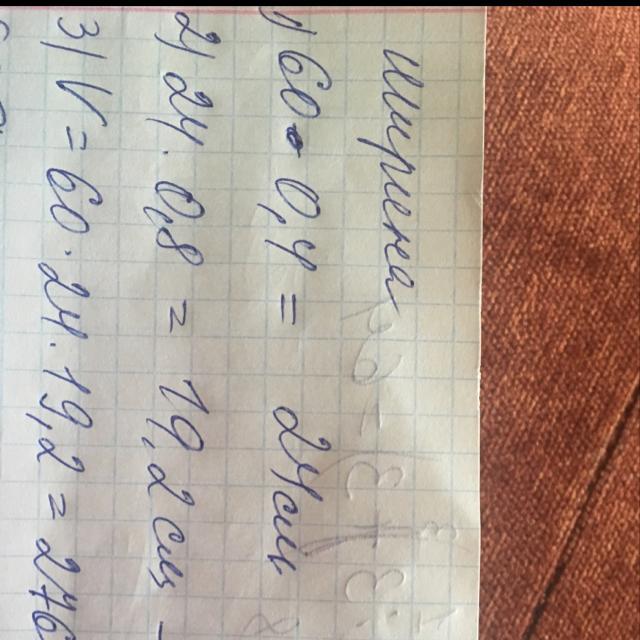 ширина
1) 60 · 0,4 = 24см
2) 24 · 0,8 = 19,2 см –
3) V = 60 · 24 · 19,2 = 276